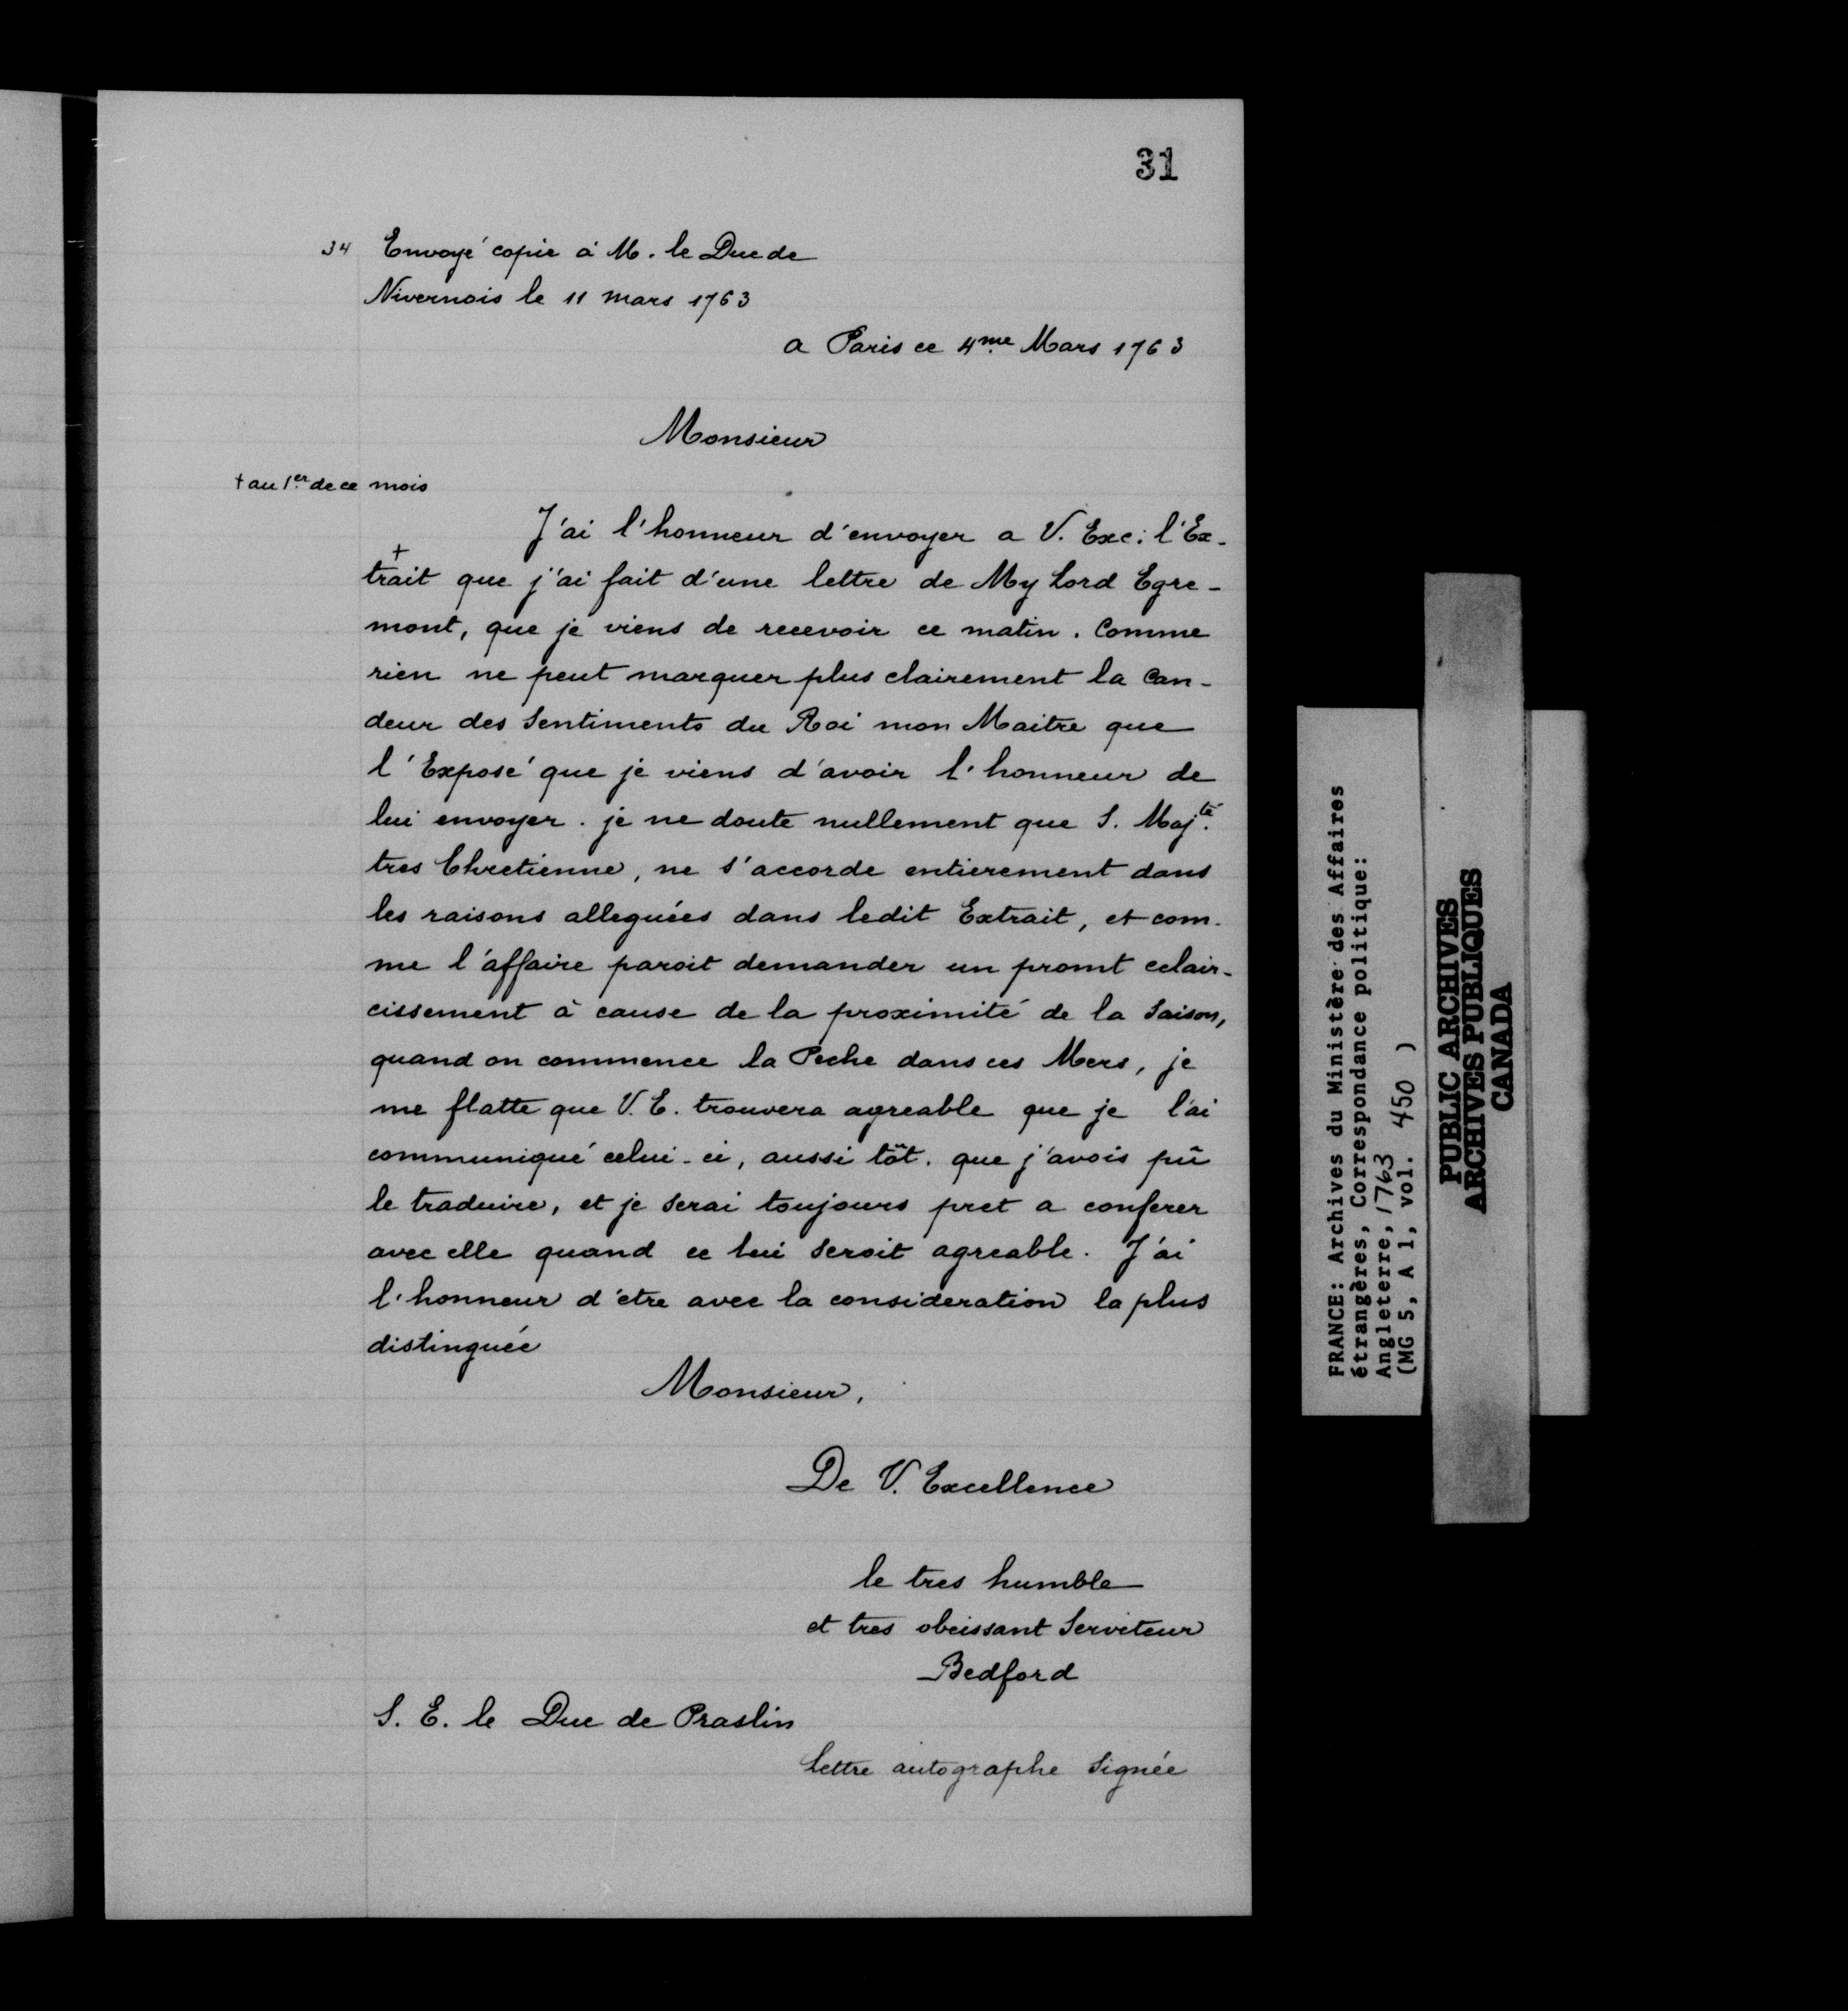 31
34 Envoyé copie à M. le Duc de
Nivernois le 11 mars 1763
a Paris ce 4me. Mars 1763
Monsieur
+ au 1er. de ce mois
J'ai l'honneur d'envoyer a V. Exc: l'Ex-
+
trait que j'ai fait d'une lettre de My Lord Egre-
mont, que je viens de recevoir ce matin. Comme
rien ne peut marquer plus clairement la Can-
deur des Sentiments du Roi mon Maitre que
l'Exposé que je viens d'avoir l'honneur de
lui envoyer. je ne doute nullement que S. Majté.
tres Chretienne, ne s'accorde entierement dans
les raisons alleguées dans ledit Extrait, et com-
me l'affaire paroit demander un promt eclair-
cissement à cause de la proximité de la Saison,
quand on commence la Peche dans ces Mers, je
me flatte que V. E. trouvera agreable que je l'ai
communiqué celui-ci, aussi tôt. que j'avois pû
le traduire, et je serai toujours pret a conferer
avec elle quand ce lui seroit agreable. J'ai
l'honneur d'etre avec la consideration la plus
distinguée
Monsieur,
De V. Excellence
le tres humble
et tres obeissant Serviteur
Bedford
S. E. le Duc de Praslin
Lettre autographe Signée
FRANCE: Archives du Ministère des Affaires
étrangères, Correspondance politique:
Angleterre, 1763
(MG 5, A 1, vol. 450 )
PUBLIC ARCHIVES
ARCHIVES PUBLIQUES
CANADA